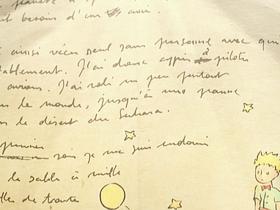 besoin d'un
ainsi vécu seul sans personne avec qui
tablement. J'ai donc appris à piloter
avions. J'ai volé un peu partout
le monde, jusqu'à une panne
le désert du Sahara.
soir je me suis endormi
le sable à mille
milles de toute